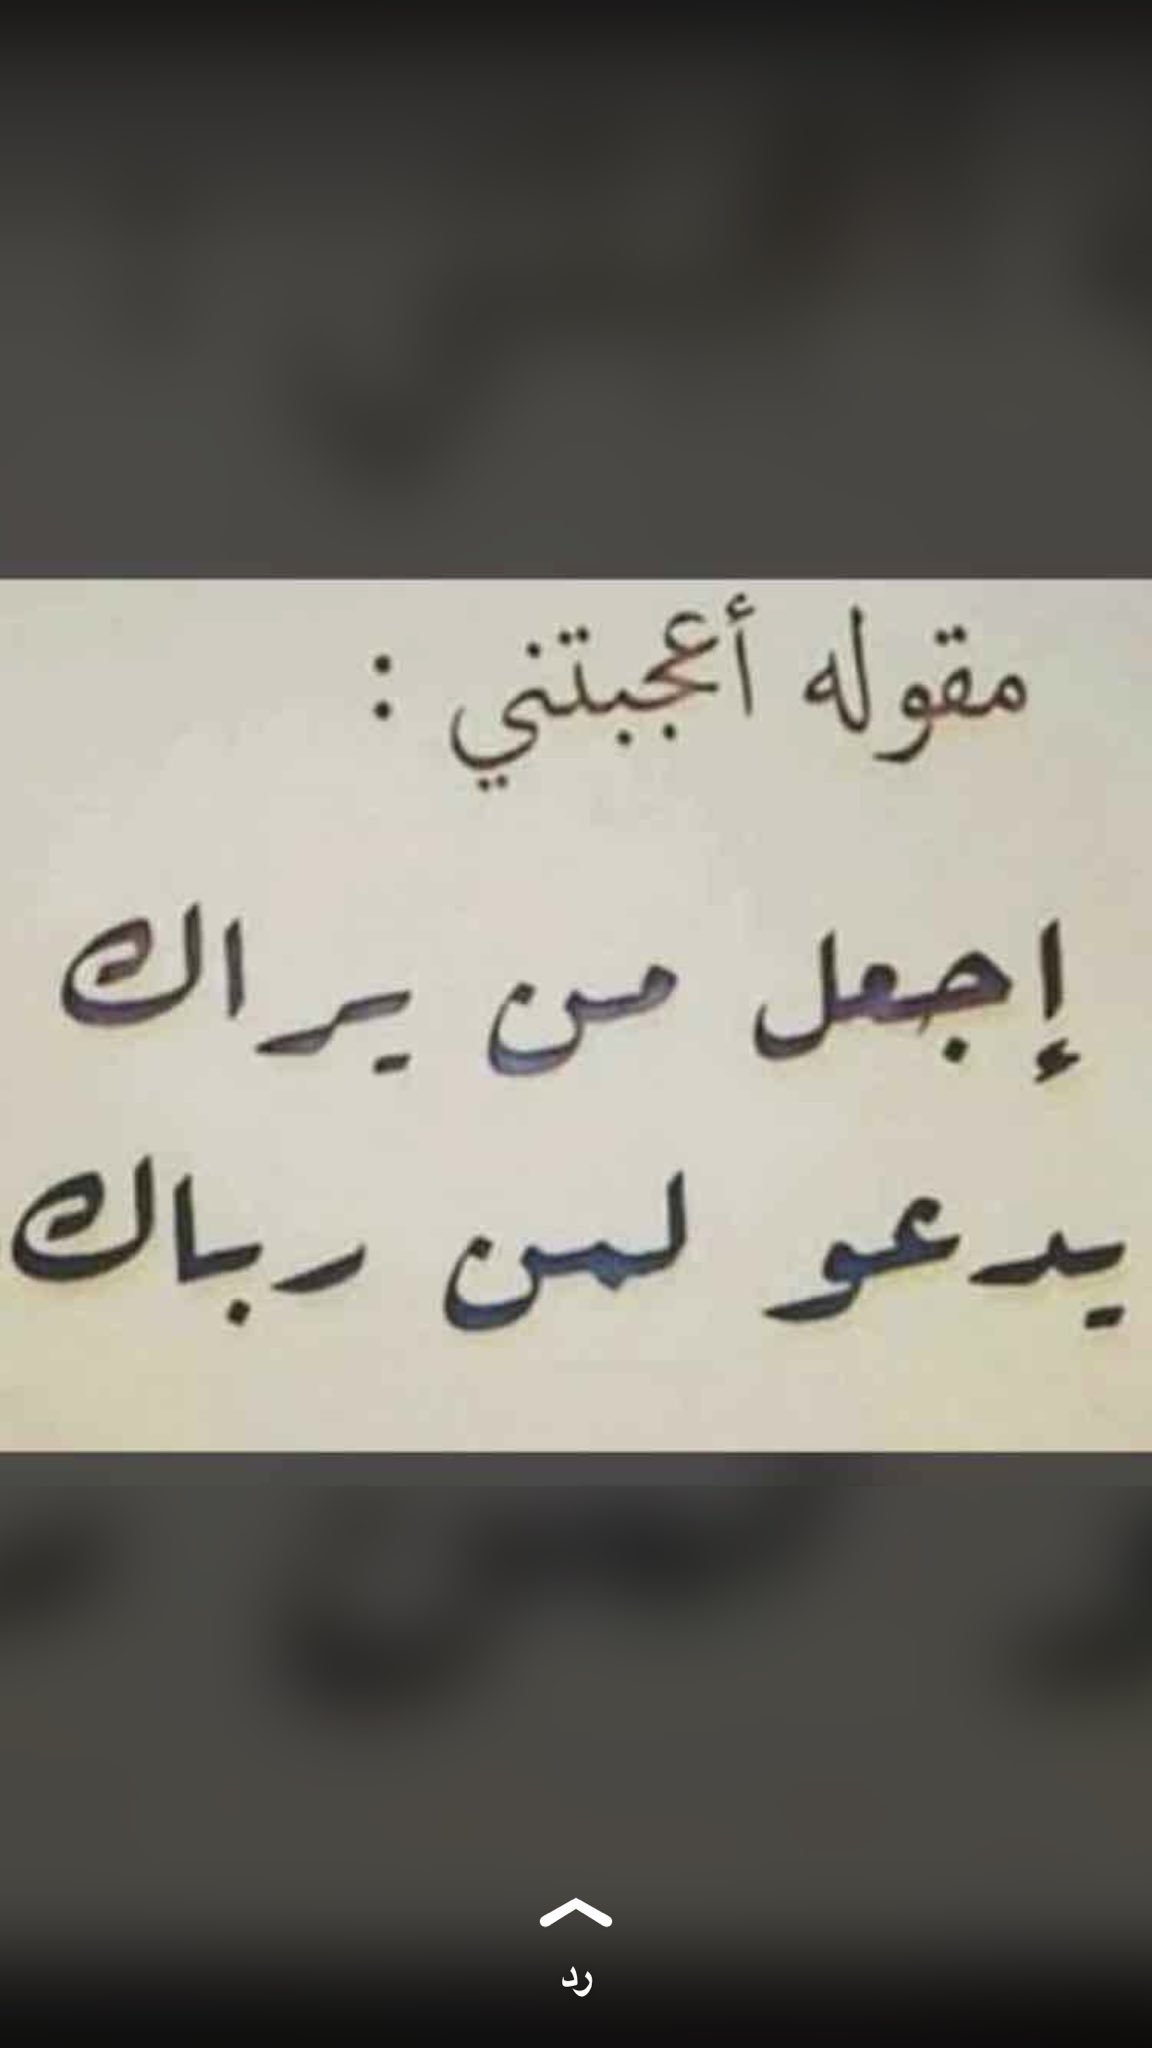 مقوله أعجبتني :
إجعل من يراك
يدعو لمن رباك
رد